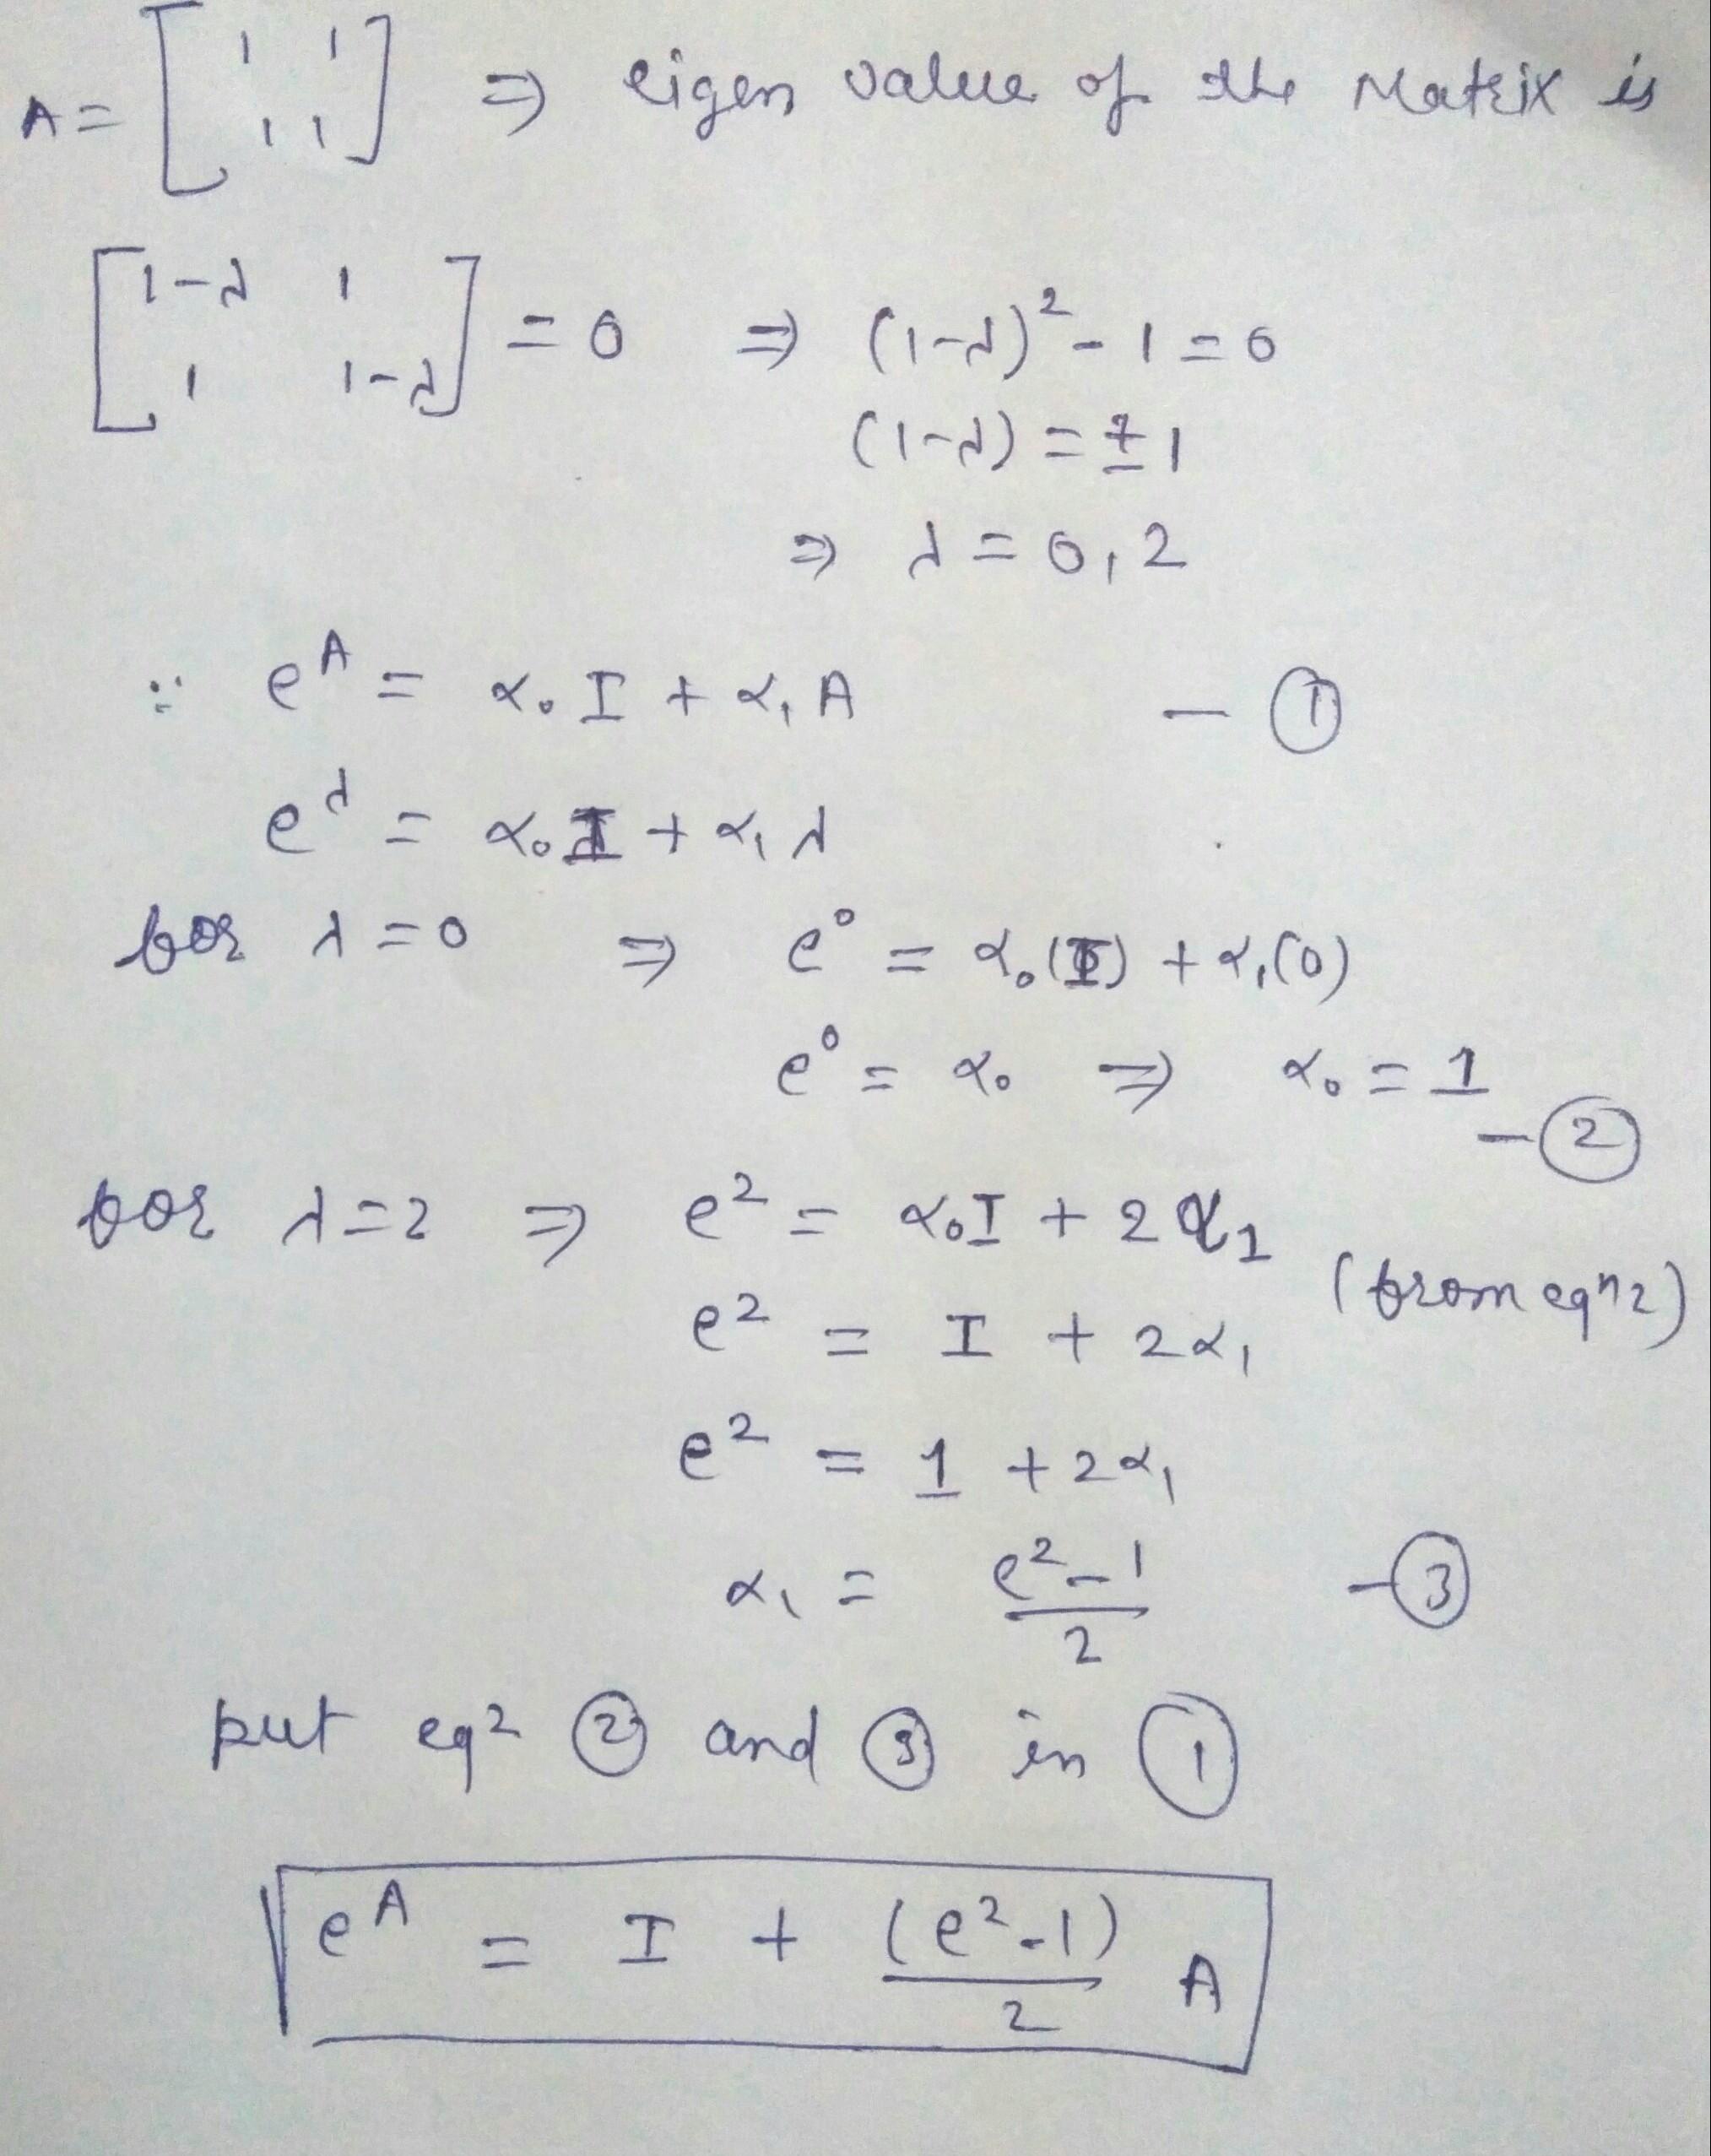 A = [ 1 1 ⇒ eigen value of the Matrix is
1 1 ]
[ 1-λ 1
1 1-λ ] = 0 ⇒ (1-λ)² - 1 = 0
(1-λ) = ± 1
⇒ λ = 0, 2
∵ e^A = α₀ I + α₁ A - ①
e^λ = α₀ I + α₁ λ
for λ = 0 ⇒ e⁰ = α₀ (I) + α₁ (0)
e⁰ = α₀ ⇒ α₀ = 1 - ②
for λ = 2 ⇒ e² = α₀ I + 2 α₁
e² = I + 2α₁ (from eqⁿ 2)
e² = 1 + 2α₁
α₁ = (e² - 1)/2 - ③
put eq² ② and ③ in ①
e^A = I + (e² - 1)/2 A